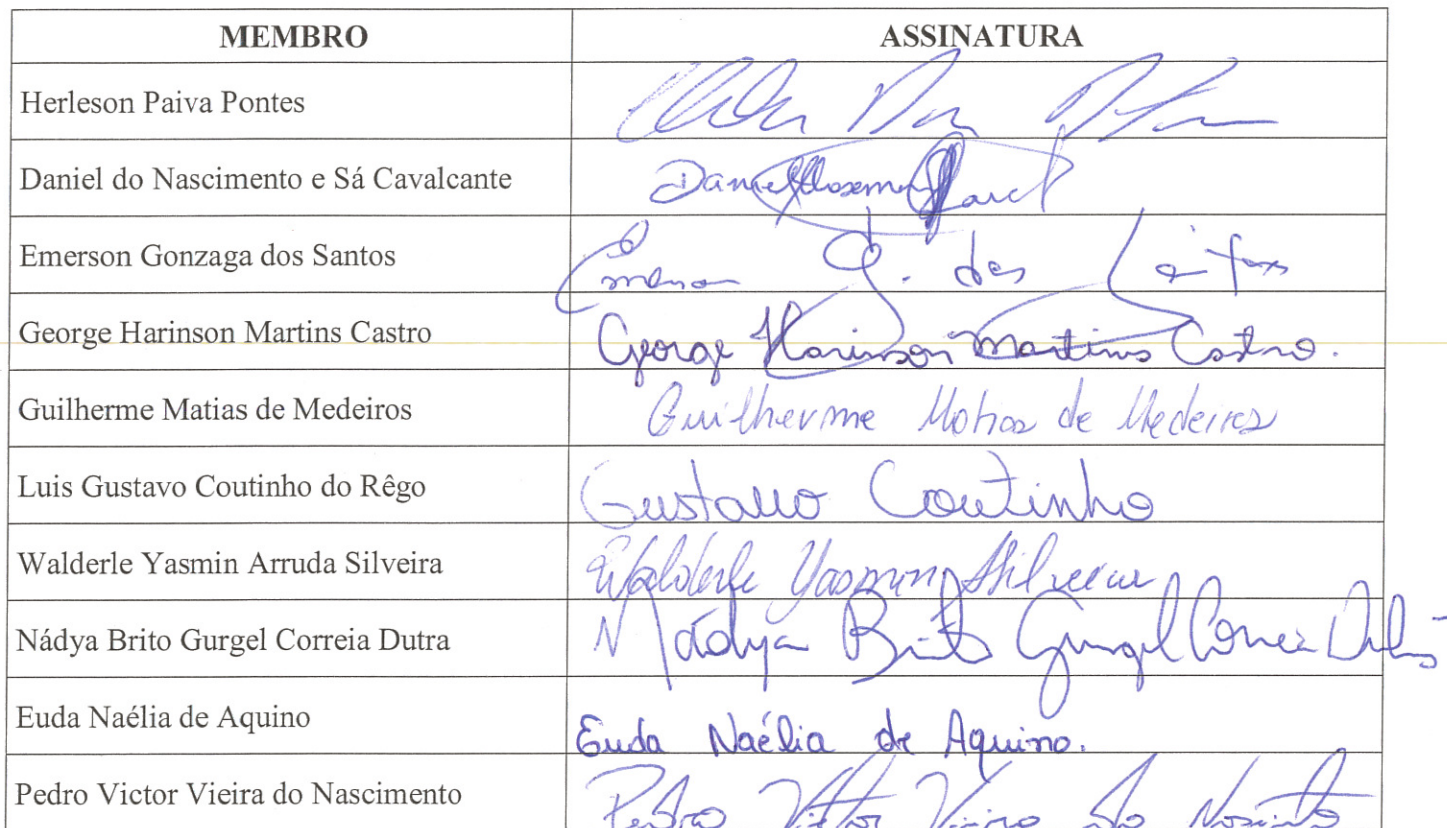 MEMBRO ASSINATURA
Herleson Paiva Pontes
Daniel do Nascimento e Sá Cavalcante Daniel
Emerson Gonzaga dos Santos Emerson G. dos Santos
George Harinson Martins Castro George Harinson Martins Castro.
Guilherme Matias de Medeiros Guilherme Matias de Medeiros
Luis Gustavo Coutinho do Rêgo Gustavo Coutinho
Walderle Yasmin Arruda Silveira Walderle Yasmin Silveira
Nádya Brito Gurgel Correia Dutra Nádya Brito Gurgel Correia Dutra
Euda Naélia de Aquino Euda Naélia de Aquino.
Pedro Victor Vieira do Nascimento Pedro Victor Vieira do Nascimento